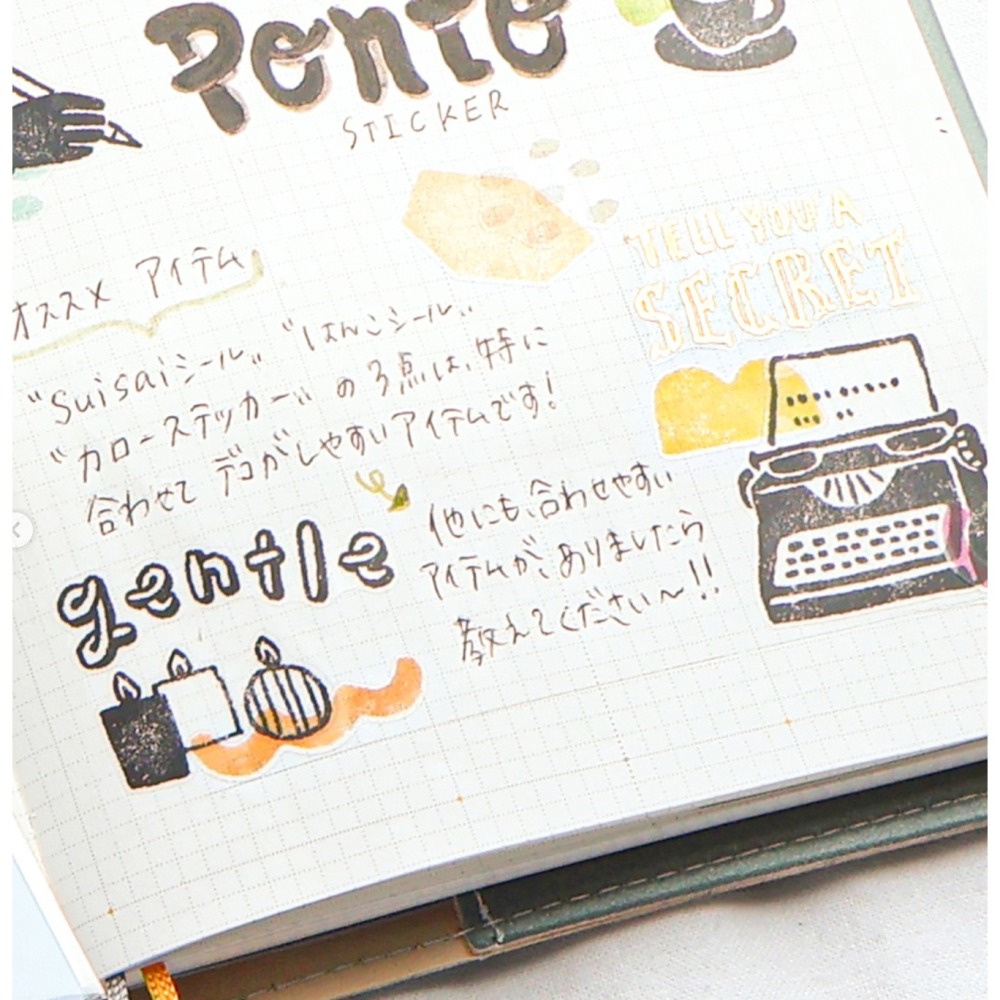 Ponto
STICKER
オススメ アイテム
"Suisaiシール" "はんこシール"
"カローステッカー" の3点は、特に
合わせて デコがしやすいアイテムです!
TELL YOU A
SECRET
gentle
他にも、合わせやすい
アイテムが、ありましたら
教えてください〜!!